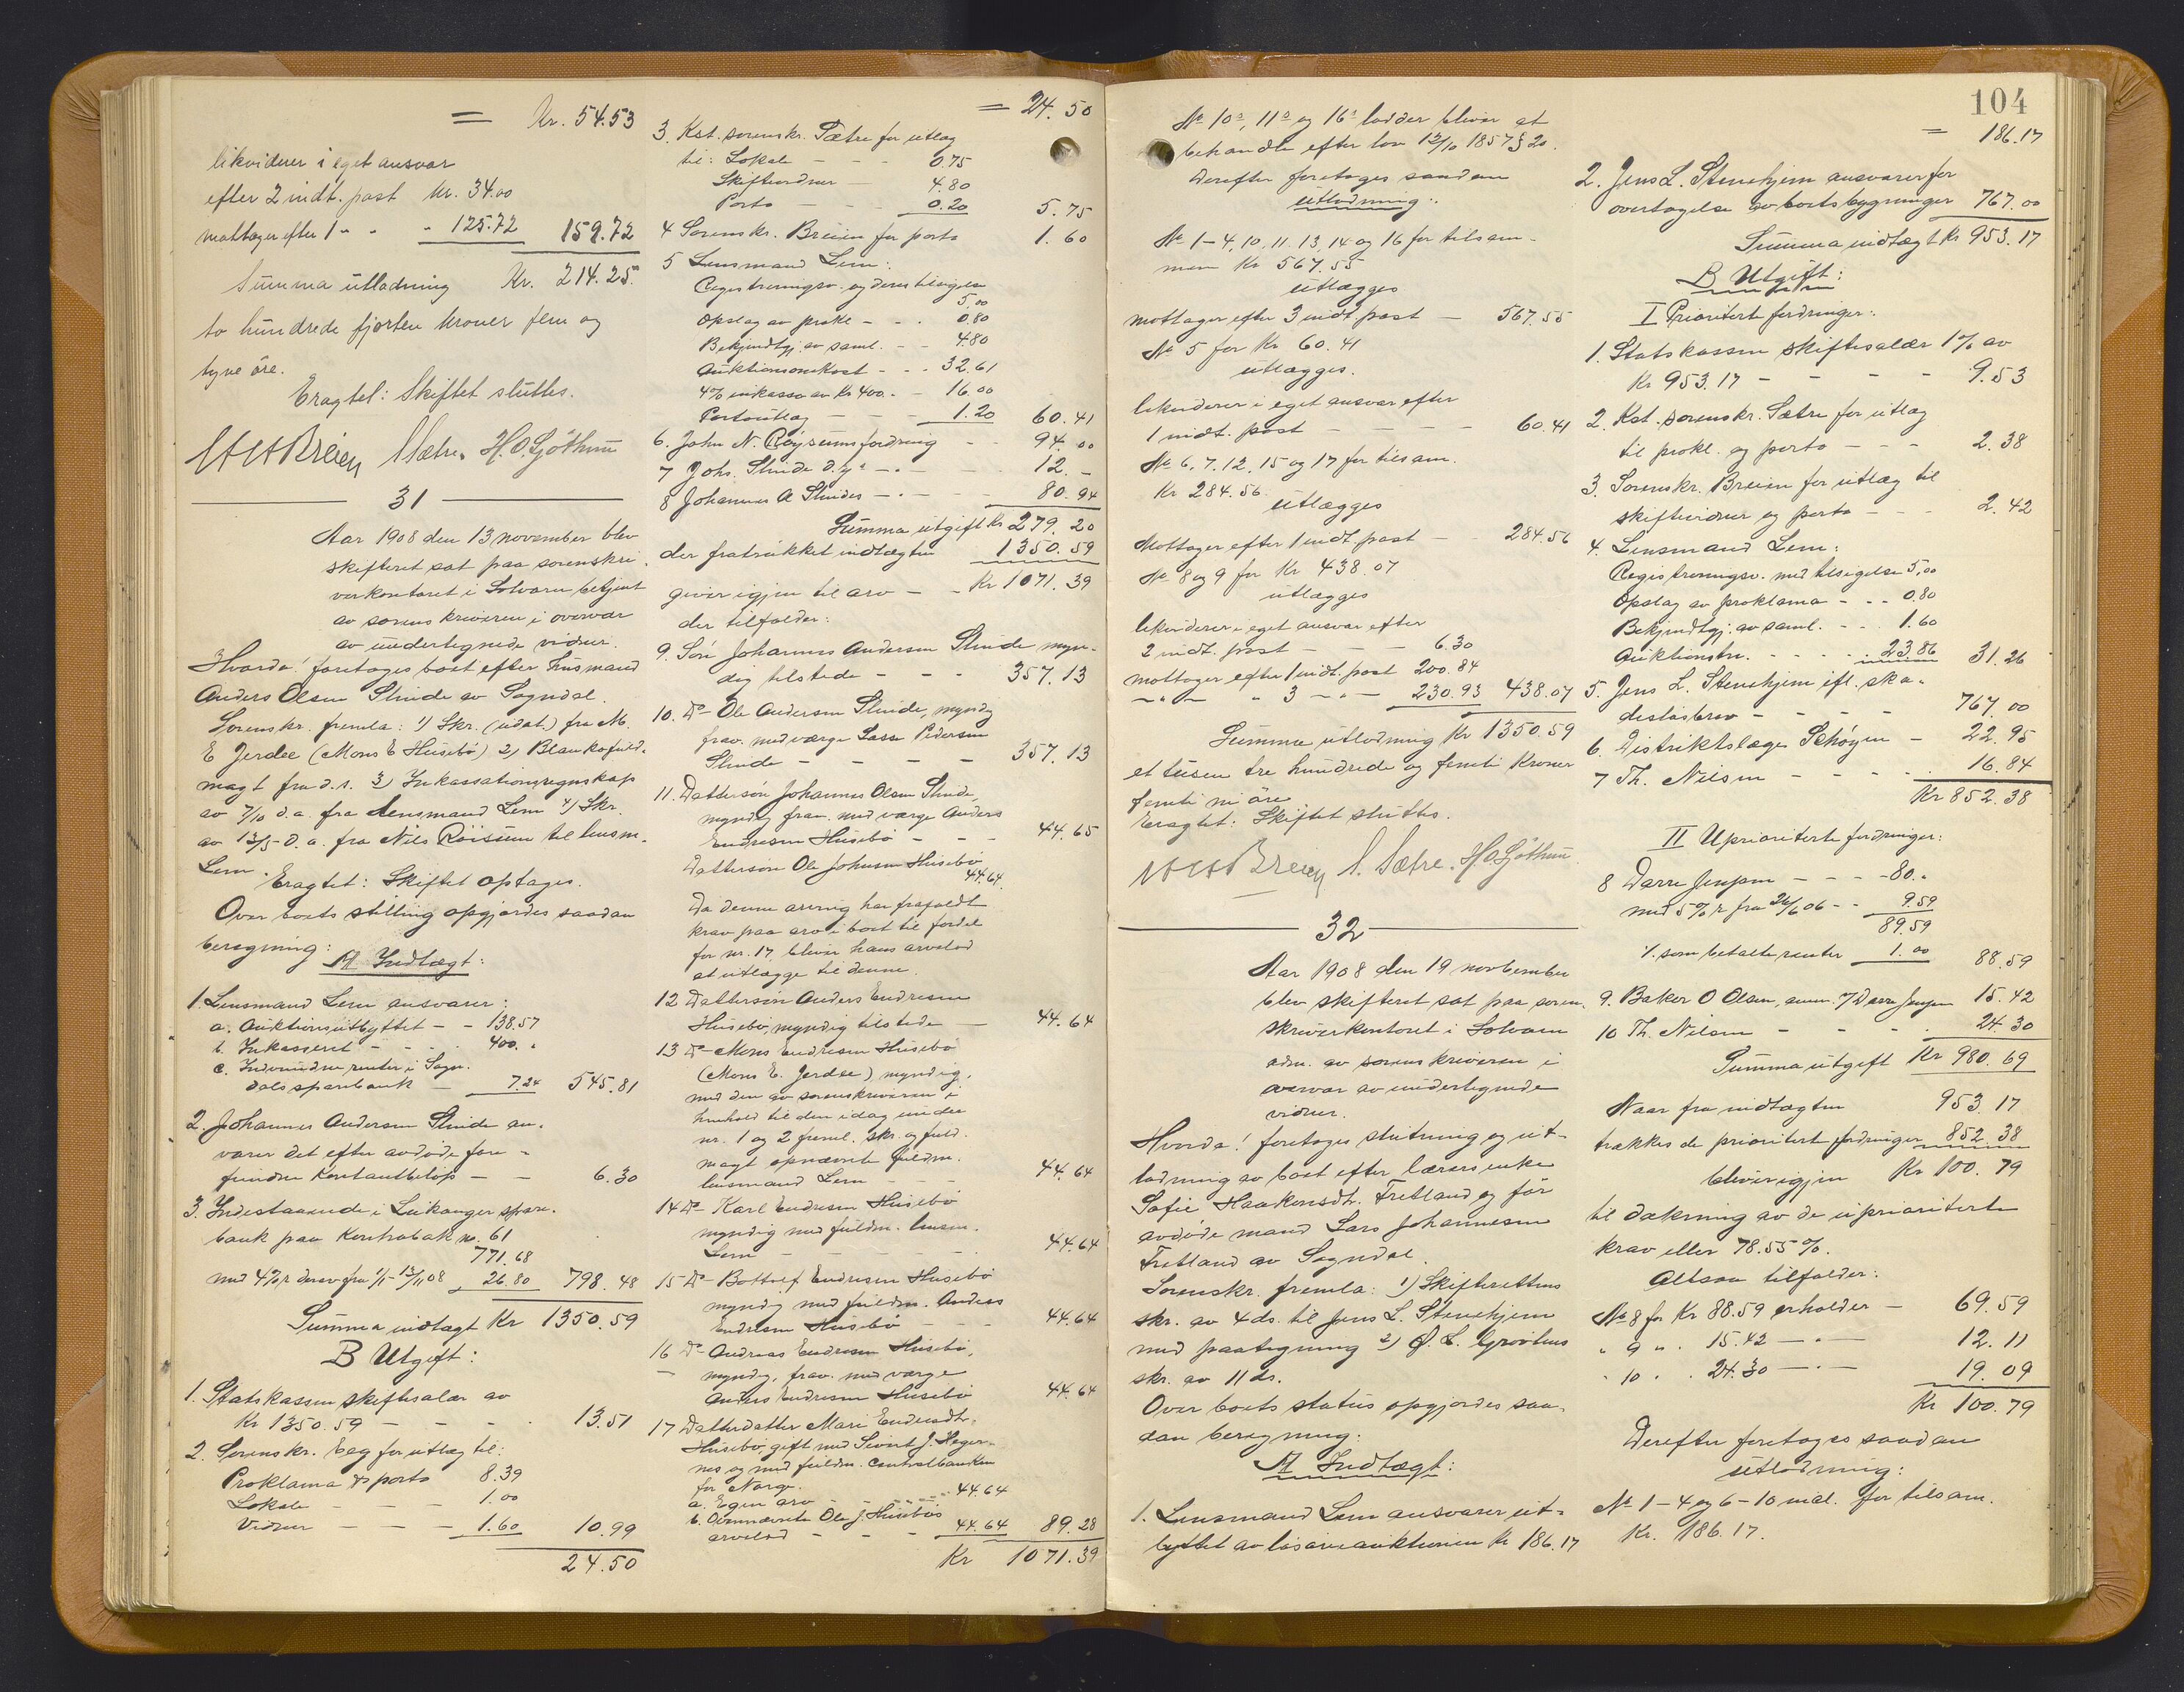 = Kr. 54.53
likviderer i eget ansvar
efter 2 indt. post Kr. 34.00
mottager efter 1 " - " 125.72 159.72
Summa utlodning Kr. 214.25
to hundrede fjorten kroner fem og
tyve øre.
Eragtet: Skiftet sluttes.
Breien Sætre. H. O. Gjöthun
31
Aar 1908 den 13 november blev
skifteret sat paa sorenskri-
verkontoret i Solvorn betjent
av sorenskriveren i overvær
av undertegnede vidner.
Hvorda! foretoges boet efter husmand
Anders Olsen Slinde av Sogndal.
Sorenskr. fremla: 1) Skr. (udat.) fra M.
E Jerdee (Mons E Husebö) 2) Blankofuld-
magt fra d.s. 3) Inkassationsregnskap
av 7/10 d.a. fra lensmand Lem 4) Skr.
av 13/5 d.a. fra Nils Röisum til lensm.
Lem.
Eragtet: Skiftet optages.
Over boets stilling opgjordes saadan
beregning:
A Indtægt:
1. Lensmand Lem ansvarer:
a. Auktionsutbyttet - - 138.57
b. Inkasseret - - - 400. "
c. Indvundne renter i Sogn-
dals sparebank - 7.24 545.81
2. Johannes Andersen Slinde an-
varer det efter avdøde fore-
fundne kontantbeløp - - 6.30
3. Indestaaende i Leikanger spare-
bank paa Kontrabok no. 61
771.68
med 4% r. derav fra 1/1 - 13/11 08 26.80 798.48
Summa indtægt Kr 1350.59
B Utgift:
1. Statskassen skiftesalær av
Kr 1350.59 - - - 13.51
2. Sorenskr. Eeg for utlæg til:
Proklama & porto 8.39
Lokale - - - 1.00
Vidner - - - 1.60 10.99
24.50
= 24.50
3. Kst. sorenskr. Sætre for utlæg
til: Lokale - - - 0.75
Skiftevidner - 4.80
Porto - - - 0.20 5.75
4 Sorenskr. Breien for porto 1.60
5 Lensmand Lem:
Registreringsv. og dens tilsigelse
5.00
Opslag av prokl. - - - 0.80
Bekjendtgj. av saml. - - 4.80
Auktionsomkost - - - 32.61
4% inkasso av Kr 400. - 16.00
Portoutlæg - - - 1.20 60.41
6. John N. Röysums fordring - - 94.00
7 Johs. Slinde d.y.s - " - - 12. -
8 Johannes A Slindes - " - - 80.94
Summa utgift Kr 279.20
der fratrukket indtægten 1350.59
giver igjen til arv - - Kr 1071.39
der tilfalder:
9. Søn Johannes Andersen Slinde myn-
dig tilstede - - - 357.13
10. Do - Ole Andersen Slinde, myndig
frav. med værge Lasse Pedersen
Slinde - - - - 357.13
11. Dattersøn Johannes Olsen Slinde,
myndig frav. med værge Anders
Endresen Husebö - - 44.65
Dattersøn Ole Johnsen Husebö
44.64
Da denne arving har frafaldt
krav paa arv i boet til fordel
for nr. 17, bliver hans arvelod
at utlægge til denne.
12 Dattersøn Anders Endresen
Husebö, myndig tilstede - 44.64
13 Do - Mons Endresen Husebö
(Mons E. Jerdee) myndig,
med den av sorenskriveren i
henhold til den idag under
nr. 1 og 2 freml. skr. og fuld-
magt opnævnte fuldm.
lensmand Lem - - - 44.64
14 Do - Karl Endresen Husebö
myndig med fuldm. lensm.
Lem - - - - 44.64
15 Do - Bottolf Endresen Husebö
myndig med fuldm. Anders
Endresen Husebö - - - 44.64
16 Do - Andreas Endresen Husebö,
myndig, frav. med værge
Anders Endresen Husebö 44.64
17 Datterdatter Mari Endresdtr.
Husebö, gift med Sivert J. Heger-
nes og med fuldm. Centralbanken
for Norge.
a. Egen arv - - - 44.64
b. Ovennævnte Ole J. Husebös
arvelod - - - 44.64 89.28
Kr 1071.39
No 10a, 11a og 16a lodder bliver at
behandle efter lov 12/10 1857 § 20.
Derefter foretoges saadan
utlodning:
No 1-4, 10, 11, 13, 14 og 16 for tilsam-
men Kr 567.55
utlægges
mottager efter 3 indt. post - 567.55
No 5 for Kr 60.41
utlægges.
likviderer i eget ansvar efter
1 indt. post - - - - 60.41
No 6, 7, 12, 15 og 17 for tilsam.
Kr 284.56.
utlægges
Mottager efter 1 indt. post - 284.56
No 8 og 9 for Kr 438.07
utlægges
likviderer i eget ansvar efter
2 indt. post - - - 6.30
mottager efter 1 indt. post 200.84
- " - " 3 - " - 230.93 438.07
Summa utlodning Kr 1350.59
et tusen tre hundrede og femti kroner
femti ni øre
Eragtet: Skiftet sluttes.
Breien S. Sætre. H. O. Gjöthun.
32
Aar 1908 den 19 november
blev skifteret sat paa soren-
skriverkontoret i Solvorn
adm. av sorenskriveren i
overvær av undertegnede
vidner.
Hvorda! foretoges slutning og ut-
lodning av boet efter lærerenke
Sofie Haakonsdtr. Fretland og før
avdøde mand Lars Johannesen
Fretland av Sogndal.
Sorenskr. fremla: 1) Skifterettens
skr. av 4 ds. til Jens L. Stenehjem
med paategning 2) Ø. L. Grøthus
skr. av 11 ds.
Over boets status opgjordes saa-
dan beregning:
A Indtægt:
1. Lensmand Lem ansvarer ut-
byttet av løsøreauktionen Kr 186.17
104
= 186.17
2. Jens L. Stenehjem ansvarer for
overtagelse av boets bygninger 767.00
Summa indtægt Kr 953.17
B Utgift:
I Prioriterte fordringer:
1. Statskassen skiftesalær 1% av
Kr 953.17 - - - - 9.53
2. Kst. sorenskr. Sætre for utlæg
til prokl. og porto - - - 2.38
3. Sorenskr. Breien for utlæg til
skiftevidner og porto - - - 2.42
4. Lensmand Lem:
Registreringsv. med tilsigelse 5.00
Opslag av proklama - - - 0.80
Bekjendtgj. av saml. - - - 1.60
Auktionstn. - - - - 23.86 31.26
5. Jens L. Stenehjem ifl. ska-
desløsbrev - - - - 767.00
6. Distriktslæge Schøyen - 22.95
7 Th. Nilsen - - - - 16.84
Kr 852.38
II Uprioriterte fordringer:
8 Darre Jenssen - - - - 80. "
med 5% r. fra 26/6 06 - - 9.59
89.59
% som betalte renter 1.00 88.59
9. Baker O Olsen, anm. v/ Darre Jenssen 15.42
10 Th. Nilsen - - - - 24.30
Summa utgift Kr 980.69
Naar fra indtægten 953.17
trækkes de prioriterte fordringer 852.38
bliver igjen Kr 100.79
til dækning av de uprioriterte
krav eller 78.55%.
Altsaa tilfalder:
No 8 for Kr 88.59 erholder - 69.59
" 9 " " 15.42 - " - 12.11
" 10 " " 24.30 - " - 19.09
Kr 100.79
Derefter foretoges saadan
utlodning:
No 1-4 og 6-10 incl. for tilsam.
Kr. 186.17.